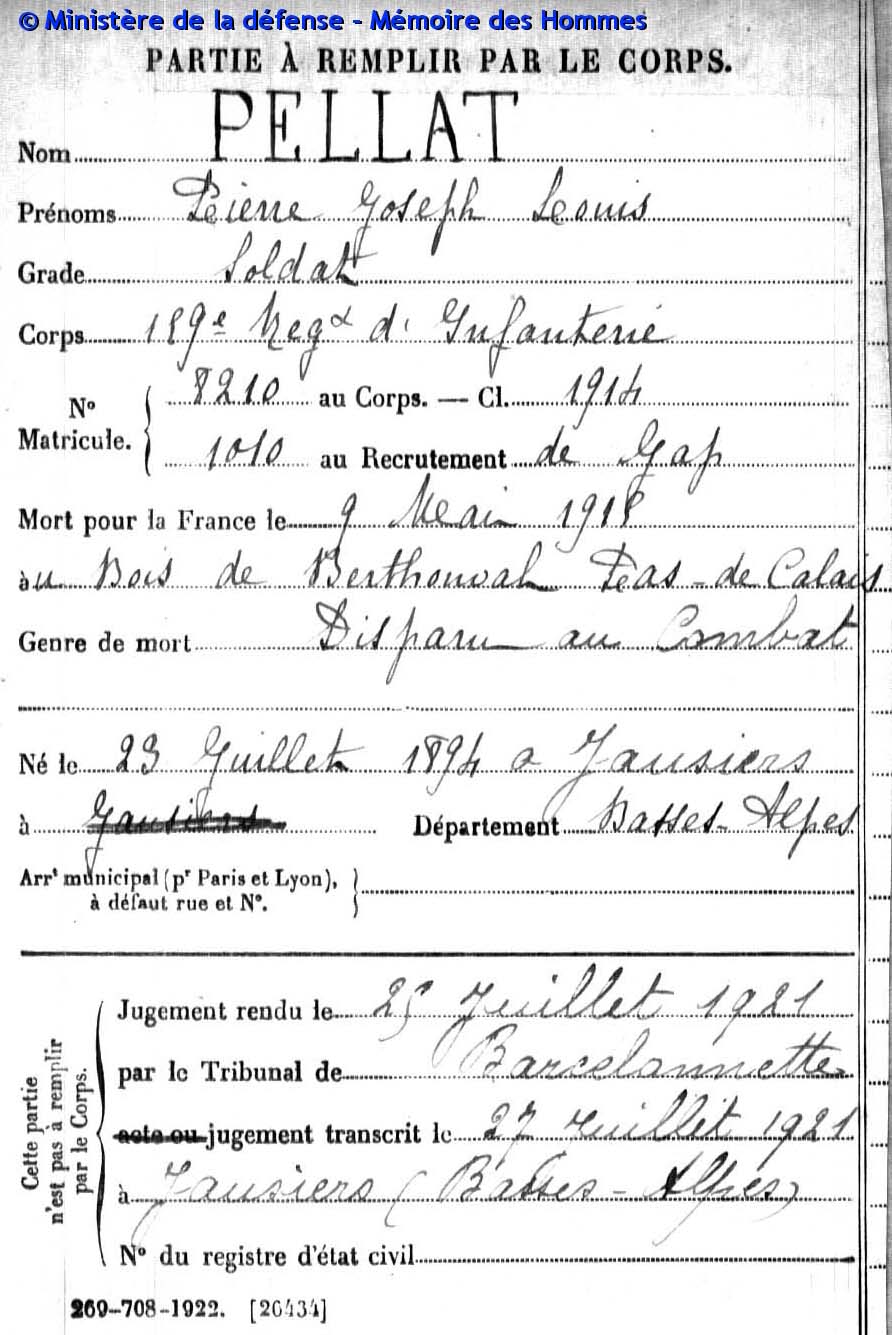 © Ministère de la défense - Mémoire des Hommes
PARTIE À REMPLIR PAR LE CORPS.
Nom PELLAT
Prénoms Pierre Joseph Louis
Grade Soldat
Corps 159e Regt d'Infanterie
No Matricule. 8210 au Corps. — Cl. 1914
1010 au Recrutement de Gap
Mort pour la France le 9 Mai 1915
au Bois de Berthonval Pas-de Calais
Genre de mort Disparu au Combat
Né le 23 Juillet 1894 a Jausiers
à Jausiers Département Basses-Alpes
Arrt municipal (pr Paris et Lyon),
à défaut rue et No.
Cette partie n'est pas à remplir par le Corps.
Jugement rendu le 25 Juillet 1921
par le Tribunal de Barcelonnette
acte ou jugement transcrit le 27 Juillet 1921
à Jausiers (Basses-Alpes)
No du registre d'état civil
269-708-1922. [26434]